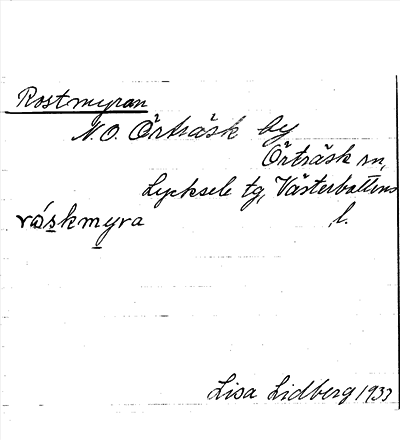 Rostmyran
N.O. Örträsk by
Örträsk sn,
Lycksele tg, Västerbottens
råskmyra l.
Lisa Lidberg 1937